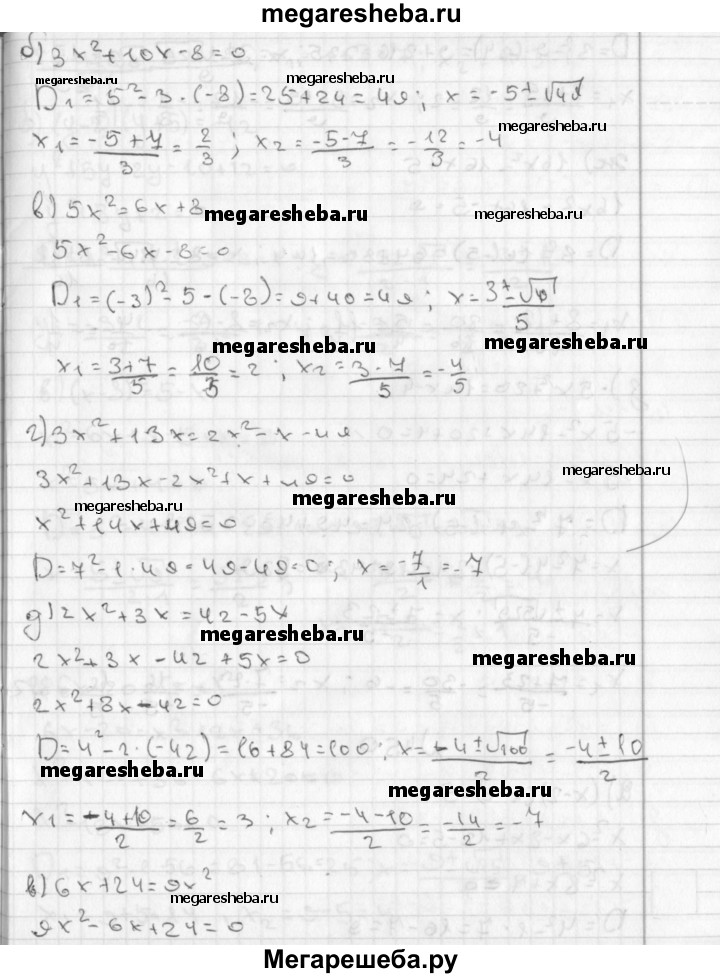 megaresheba.ru
б) 3x²+10x-8=0
megaresheba.ru megaresheba.ru
D₁=5²-3·(-8)=25+24=49; x=-5±√49
megaresheba.ru
x₁=(-5+7)/3=2/3; x₂=(-5-7)/3=-12/3=-4
в) 5x²=6x+8
megaresheba.ru megaresheba.ru
5x²-6x-8=0
D₁=(-3)²-5-(-8)=9+40=49; x=(3±√49)/5
megaresheba.ru megaresheba.ru
x₁=(3+7)/5=10/5=2; x₂=(3-7)/5=-4/5
г) 3x²+13x=2x²-x-49
megaresheba.ru
3x²+13x-2x²+x+49=0
megaresheba.ru megaresheba.ru
x²+14x+49=0
D=7²-1·49=49-49=0; x=-7/1=-7
megaresheba.ru
д) 2x²+3x=42-5x
megaresheba.ru
2x²+3x-42+5x=0
megaresheba.ru
2x²+8x-42=0
D=4²-2·(-42)=16+84=100; x=(-4±√100)/2=(-4±10)/2
megaresheba.ru
megaresheba.ru
x₁=(-4+10)/2=6/2=3; x₂=(-4-10)/2=-14/2=-7
в) 6x+24=9x²
megaresheba.ru megaresheba.ru
9x²-6x+24=0
Мегарешеба.ру